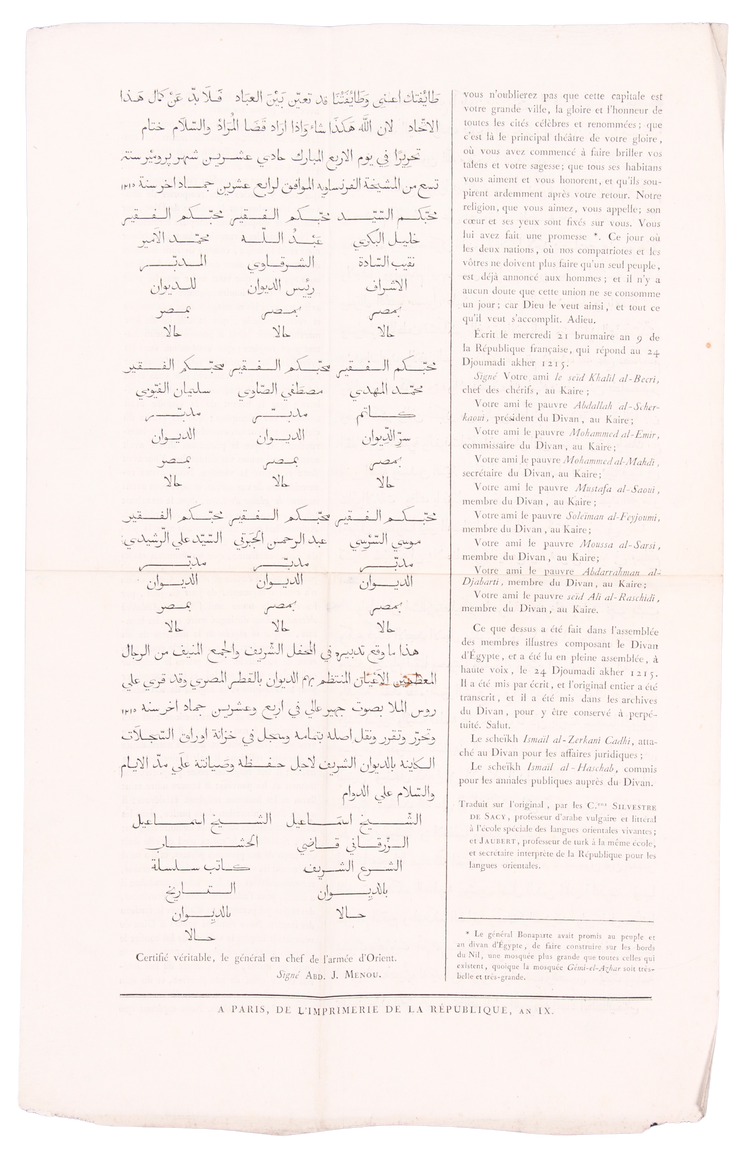 طايفتك اعني وطايفتنا قد تعين بين العباد فلا بد عن كمال هذا
الاتحاد لان الله هكذا شاء واذا اراد قضا المراد والسلام ختام
تحريرًا في يوم الاربع المبارك حادي عشرين شهر برومير سنة
تسع من المشيخة الفرنساوية الموافق لرابع عشرين جماد اخر سنة ١٢١٥
محبكم السيد محبكم الفقير محبكم الفقير
خليل البكري عبد الله محمد الامير
نقيب السادة الشرقاوي المدبر
الاشراف رئيس الديوان للديوان
بمصر بمصر بمصر
حالا حالا حالا
محبكم الفقير محبكم الفقير محبكم الفقير
محمد المهدي مصطفي الصاوي سليمان الفيومي
كاتم مدبر مدبر
سر الديوان الديوان الديوان
بمصر بمصر بمصر
حالا حالا حالا
محبكم الفقير محبكم الفقير محبكم الفقير
موسي السرسي عبد الرحمن الجبرتي السيد علي الرشيدي
مدبر مدبر مدبر
الديوان الديوان الديوان
بمصر بمصر بمصر
حالا حالا حالا
هذا ما وقع تدبيره في المحفل الشريف والجمع المنيف من الرجال
المعظمين الاعيان المنتظم بهم الديوان بالقطر المصري وقد قري علي
روس الملا بصوت جهير عالي في اربع وعشرين جماد اخر سنة ١٢١٥
وتحرر وتقرر ونقل اصله بتمامه وسجل في خزانة اوراق السجلات
الكاينة بالديوان الشريف لاجل حفظه وصيانته علي مد الايام
والسلام علي الدوام
الشيخ اسماعيل الشيخ اسماعيل
الزرقاني قاضي الخشاب
الشرع الشريف كاتب سلسلة
بالديوان التاريخ
حالا بالديوان
حالا
Certifié véritable, le général en chef de l'armée d'Orient.
Signé ABD. J. MENOU.
vous n'oublierez pas que cette capitale est
votre grande ville, la gloire et l'honneur de
toutes les cités célèbres et renommées; que
c'est là le principal théâtre de votre gloire,
où vous avez commencé à faire briller vos
talens et votre sagesse; que tous ses habitans
vous aiment et vous honorent, et qu'ils sou-
pirent ardemment après votre retour. Notre
religion, que vous aimez, vous appelle; son
cœur et ses yeux sont fixés sur vous. Vous
lui avez fait une promesse *. Ce jour où
les deux nations, où nos compatriotes et les
vôtres ne doivent plus faire qu'un seul peuple,
est déjà annoncé aux hommes; et il n'y a
aucun doute que cette union ne se consomme
un jour; car Dieu le veut ainsi, et tout ce
qu'il veut s'accomplit. Adieu.
Écrit le mercredi 21 brumaire an 9 de
la République française, qui répond au 24
Djoumadi akher 1215.
Signé Votre ami le seïd Khalil al-Becri,
chef des chérifs, au Kaire;
Votre ami le pauvre Abdallah al-Scher-
kaoui, président du Divan, au Kaire;
Votre ami le pauvre Mohammed al-Emir,
commissaire du Divan, au Kaire;
Votre ami le pauvre Mohammed al-Mahdi,
secrétaire du Divan, au Kaire;
Votre ami le pauvre Mustafa al-Saoui,
membre du Divan, au Kaire;
Votre ami le pauvre Soleïman al-Feyjoumi,
membre du Divan, au Kaire;
Votre ami le pauvre Moussa al-Sarsi,
membre du Divan, au Kaire;
Votre ami le pauvre Abdarrahman al-
Djabarti, membre du Divan, au Kaire;
Votre ami le pauvre seïd Ali al-Raschidi,
membre du Divan, au Kaire.
Ce que dessus a été fait dans l'assemblée
des membres illustres composant le Divan
d'Égypte, et a été lu en pleine assemblée, à
haute voix, le 24 Djoumadi akher 1215.
Il a été mis par écrit, et l'original entier a été
transcrit, et il a été mis dans les archives
du Divan, pour y être conservé à perpé-
tuité. Salut.
Le scheïkh Ismaïl al-Zerkani Cadhi, atta-
ché au Divan pour les affaires juridiques;
Le scheïkh Ismaïl al-Haschab, commis
pour les annales publiques auprès du Divan.
Traduit sur l'original, par les C.ens SILVESTRE
DE SACY, professeur d'arabe vulgaire et littéral
à l'école spéciale des langues orientales vivantes;
et JAUBERT, professeur de turk à la même école,
et secrétaire interprète de la République pour les
langues orientales.
* Le général Bonaparte avait promis au peuple et
au divan d'Égypte, de faire construire sur les bords
du Nil, une mosquée plus grande que toutes celles qui
existent, quoique la mosquée Gémi-el-Azhar soit très-
belle et très-grande.
A PARIS, DE L'IMPRIMERIE DE LA RÉPUBLIQUE, AN IX.